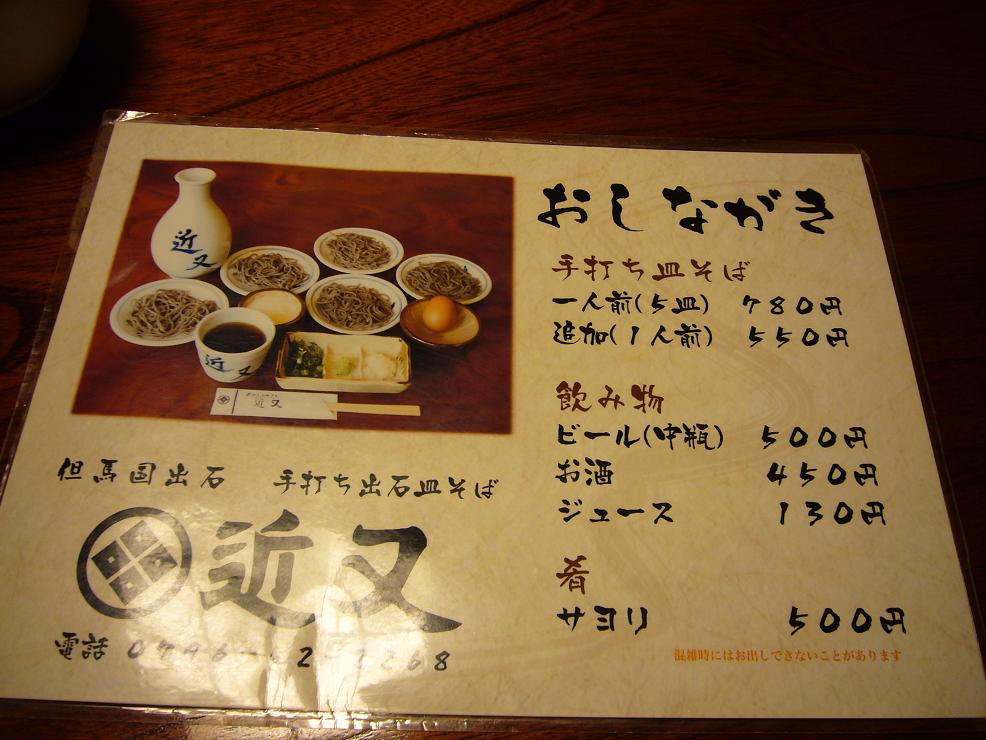 おしながき
手打ち皿そば
一人前(5皿) 780円
追加(1人前) 550円
飲み物
ビール(中瓶) 500円
お酒 450円
ジュース 130円
肴
サヨリ 500円
混雑時にはお出しできないことがあります
近又
近又
近又
但馬国出石 手打ち出石皿そば
近又
電話